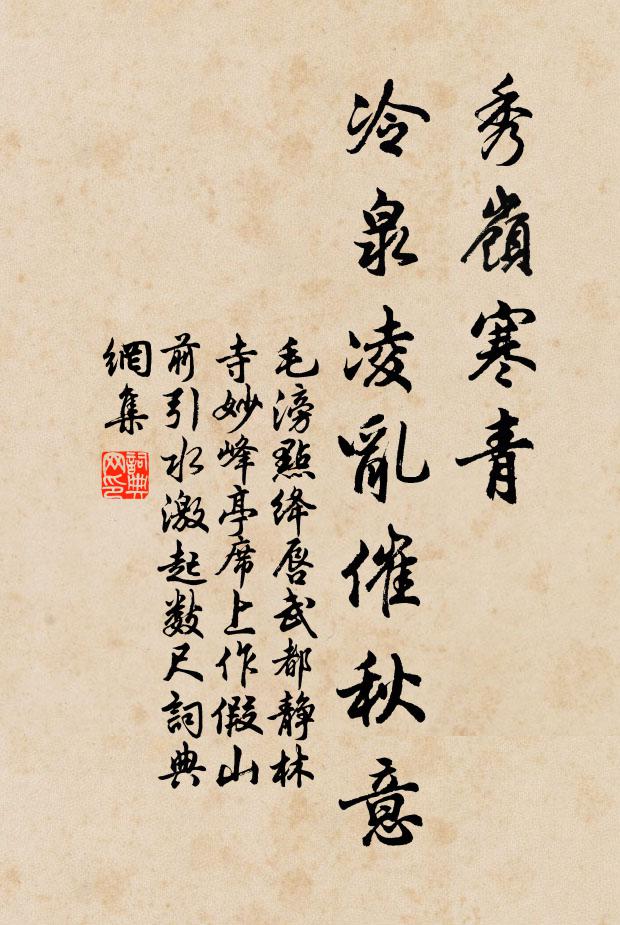 秀嶺寒青
冷泉凌亂催秋意
毛滂點絳唇武都靜林
寺妙峰亭席上作假山
前引水激起數尺詞典
網集
詞典
网印